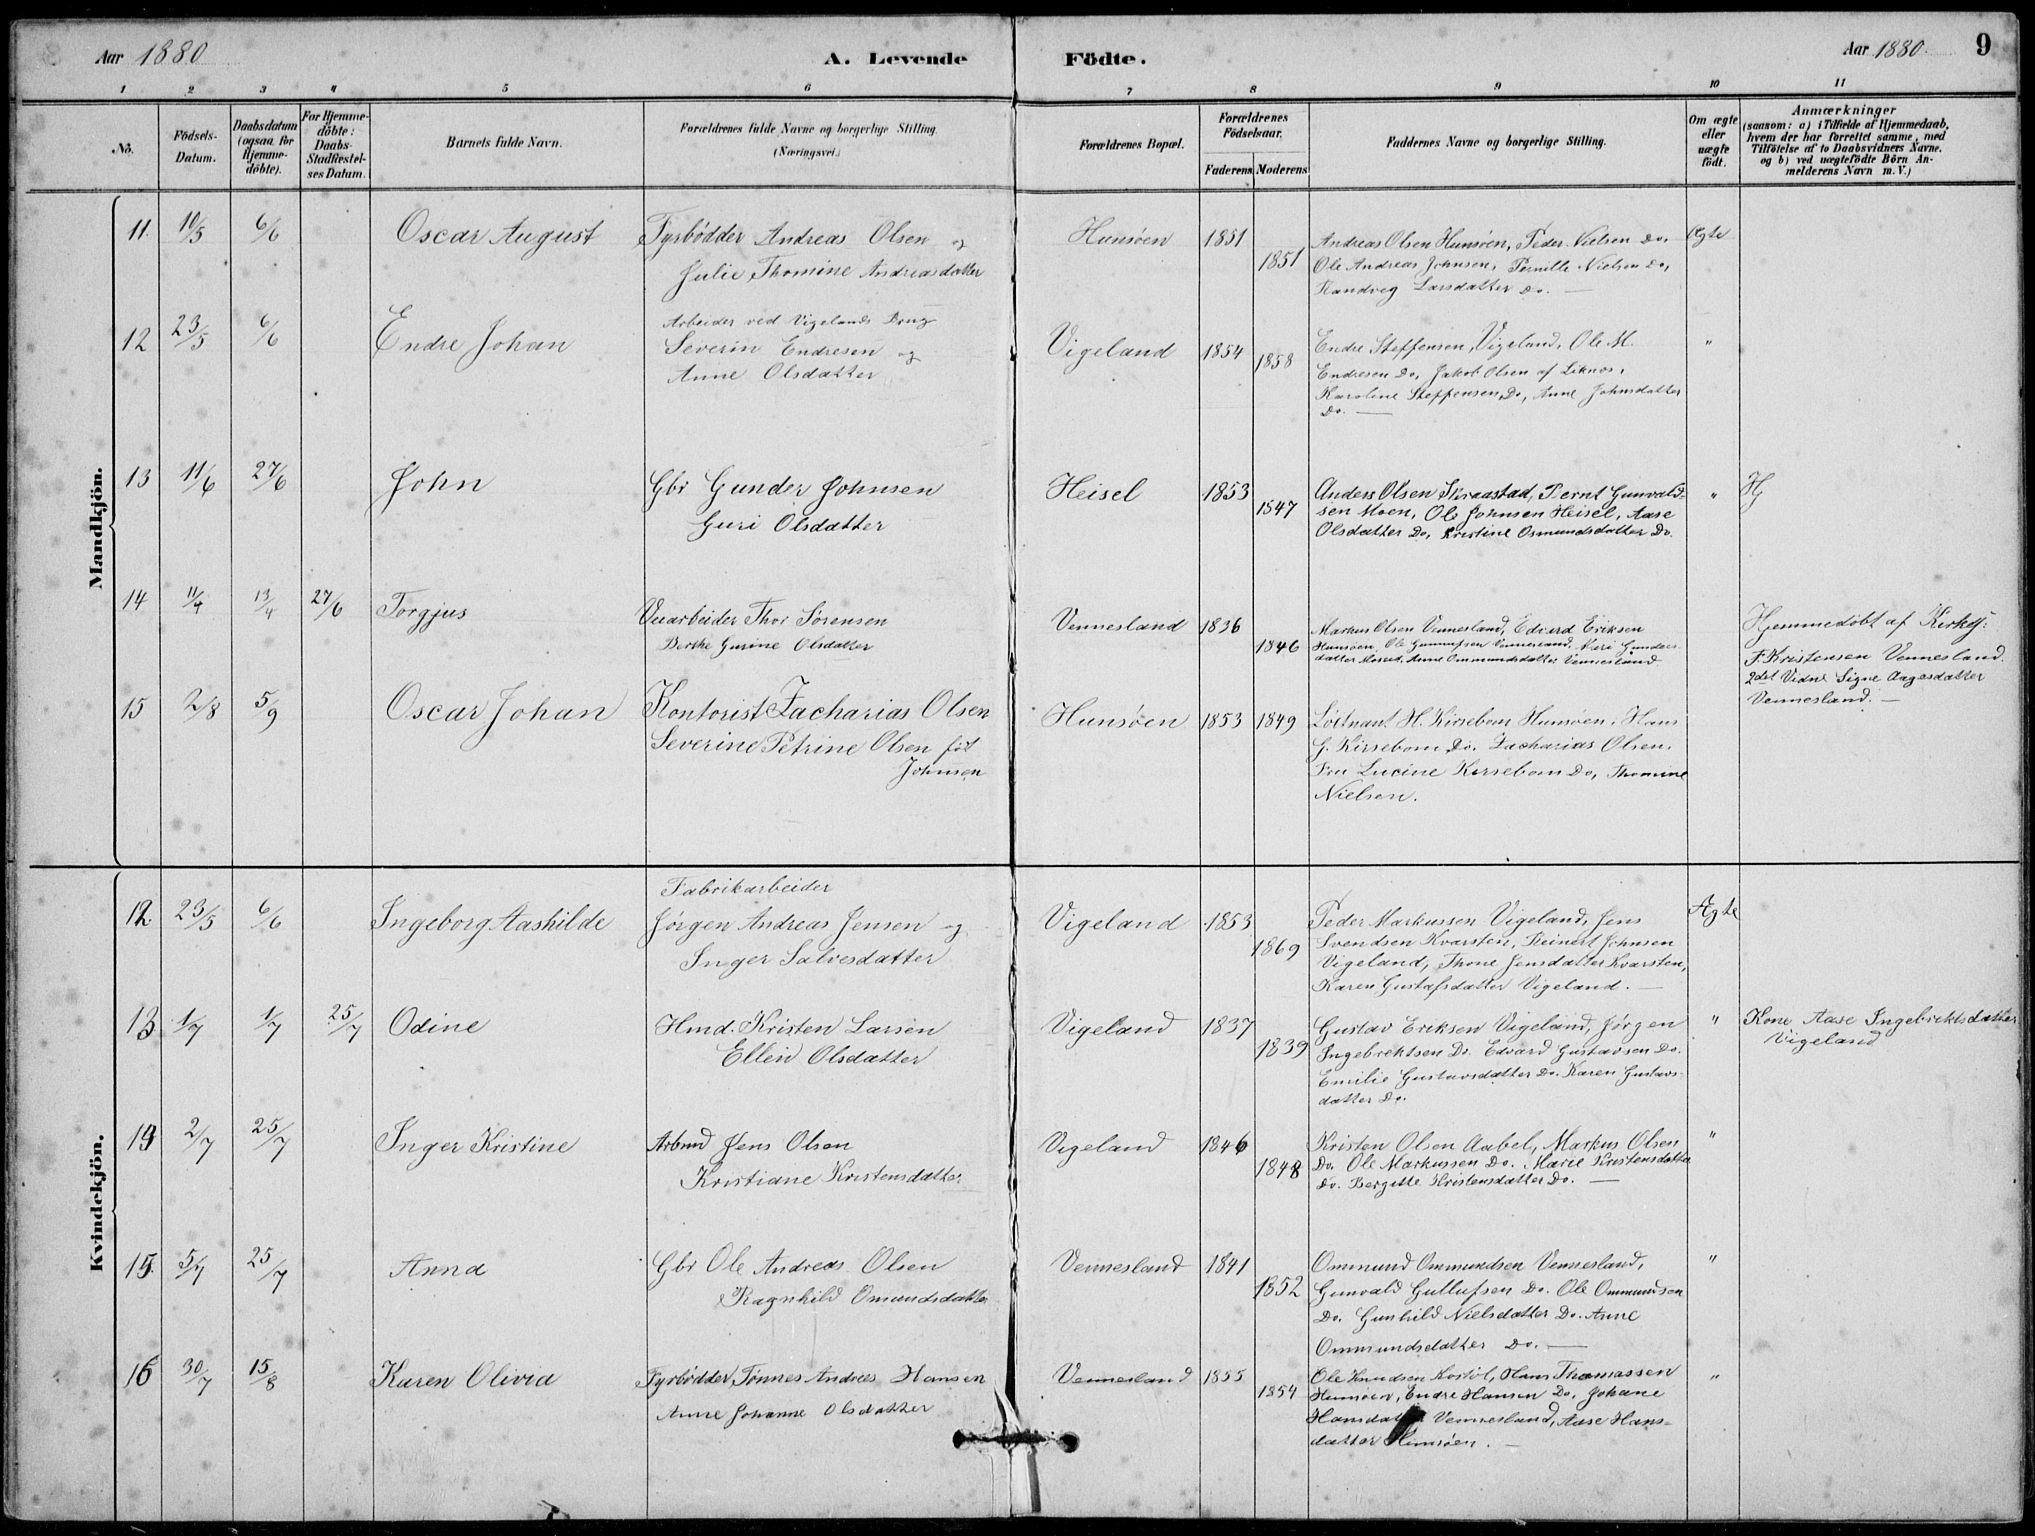 Aar 1880
A. Levende
Födte.
Aar 1880.
9
1 2 3 4 5 6 7 8 9 10 11
No.
Födsels-Datum.
Daabsdatum (ogsaa for Hjemme-döbte).
For Hjemme-döbte: Daabs-Stadfæstel-ses Datum.
Barnets fulde Navn.
Forældrenes fulde Navne og borgerlige Stilling.
(Næringsvei.)
Forældrenes Bopæl.
Forældrenes Födselsaar.
Faderens Moderens
Faddernes Navne og borgerlige Stilling.
Om ægte eller uægte födt.
Anmærkninger
(saasom: a) i Tilfælde af Hjemmedaab,
hvem der har forrettet samme, med
Tilföielse af to Daabsvidners Navne,
og b) ved uægtefödte Börn An-
melderens Navn m. V.)
Mandkjön.
11. 10/5 6/6 Oscar August Fyrbödder Andreas Olsen og Hunsöen 1851 Andreas Olsen Hunsöen, Peder Nielsen Do, Ægte
Julie Thomine Andreasdatter 1851 Ole Andreas Johnsen, Pernille Nielsen Do,
Randveg Larsdatter Do. —
Arbeider ved Vigelands Brug
12 23/5 6/6 Endre Johan Severin Endresen og Vigeland 1854 Endre Steffensen, Vigeland, Ole M. "
Anne Olsdatter 1858 Endresen Do, Jakob Olsen af
Karoline Steffensen Do, Anne Johnsdatter
Do. —
13 11/6 27/6 John Gbr Gunder Johnsen Heisel 1853 Anders Olsen Straastad, Bernt Gunvald- " Hj
Guri Olsdatter 1847 sen Moen, Ole Johnsen Heisel, Aase
Olsdatter Do, Kristine Osmundsdatter Do.
14 11/4 13/4 27/6 Torgjus Veiarbeider Thor Sörensen Vennesland 1836 Markus Olsen Vennesland, Edvard Eriksen Hjemmedöbt af
Berthe Gurine Olsdatter 1846 Hunsöen, Ole Gunnufsen Vennesland, Gunders-
datter Anne Ommundsdatter Vennesland
F. Kristensen Vennesland.
2det Vidne Signe Aagesdatter
Vennesland. —
15 2/8 5/9 Oscar Johan Kontorist Zacharias Olsen Hunsöen 1853 1849 Löitnant H. Kirsebom Hunsöen, Hans
Severine Petrine Olsen föt G. Kirsebom Do. Zacharias Olsen.
Johnsen Fru Lucine Kirsebom Do, Thomine
Nielsen.
Kvindekjön.
Fabrikarbeider
12 23/5 6/6 Ingeborg Aashilde Jörgen Andreas Jensen og Vigeland 1853 Peder Markussen Vigeland, Jens Ægte
Inger Salvesdatter 1869 Svendsen Kvarsten, Reinert Johnsen
Vigeland, Thone Jensdatter Kvarsten,
Karen Gustafsdatter Vigeland. —
13 1/7 1/7 25/7 Odine Hmd. Kristen Larsen Vigeland 1837 Gustav Eriksen Vigeland, Jörgen " Kone Aase Ingebrektsdatter
Ellen Olsdatter 1839 Ingebrektsen Do. Edvard Gustavsen Do. Vigeland
Emilie Gustavsdatter Do. Karen Gustavs-
datter Do.
14 2/7 25/7 Inger Kristine Arbmd Jens Olsen Vigeland 1846 Kristen Olsen Aabel, Markus Olsen "
Kristiane Kristensdatter 1848 Do. Ole Markussen Do. Marie Kristensdatter
Do. Bergitte Kristensdatter Do. —
15 5/7 25/7 Anna Gbr Ole Andreas Olsen Vennesland 1841 Ommund Ommundsen Vennesland, "
Ragnhild Omundsdatter 1852 Gunvald Gullufsen Do. Ole Ommundsen
Do. Gunhild Nielsdatter Do. Anne
Ommundsdatter Do. —
16 30/7 15/8 Karen Olivia Fyrbödder Tönnes Andreas Hansen Vennesland 1855 Ole Knudsen Kostöl, Hans Thomassen "
Anne Johanne Olsdatter 1854 Hunsöen, Endre Hansen Do, Johane
Hansdatter Vennesland, Aase Hans-
datter Hunsöen. —